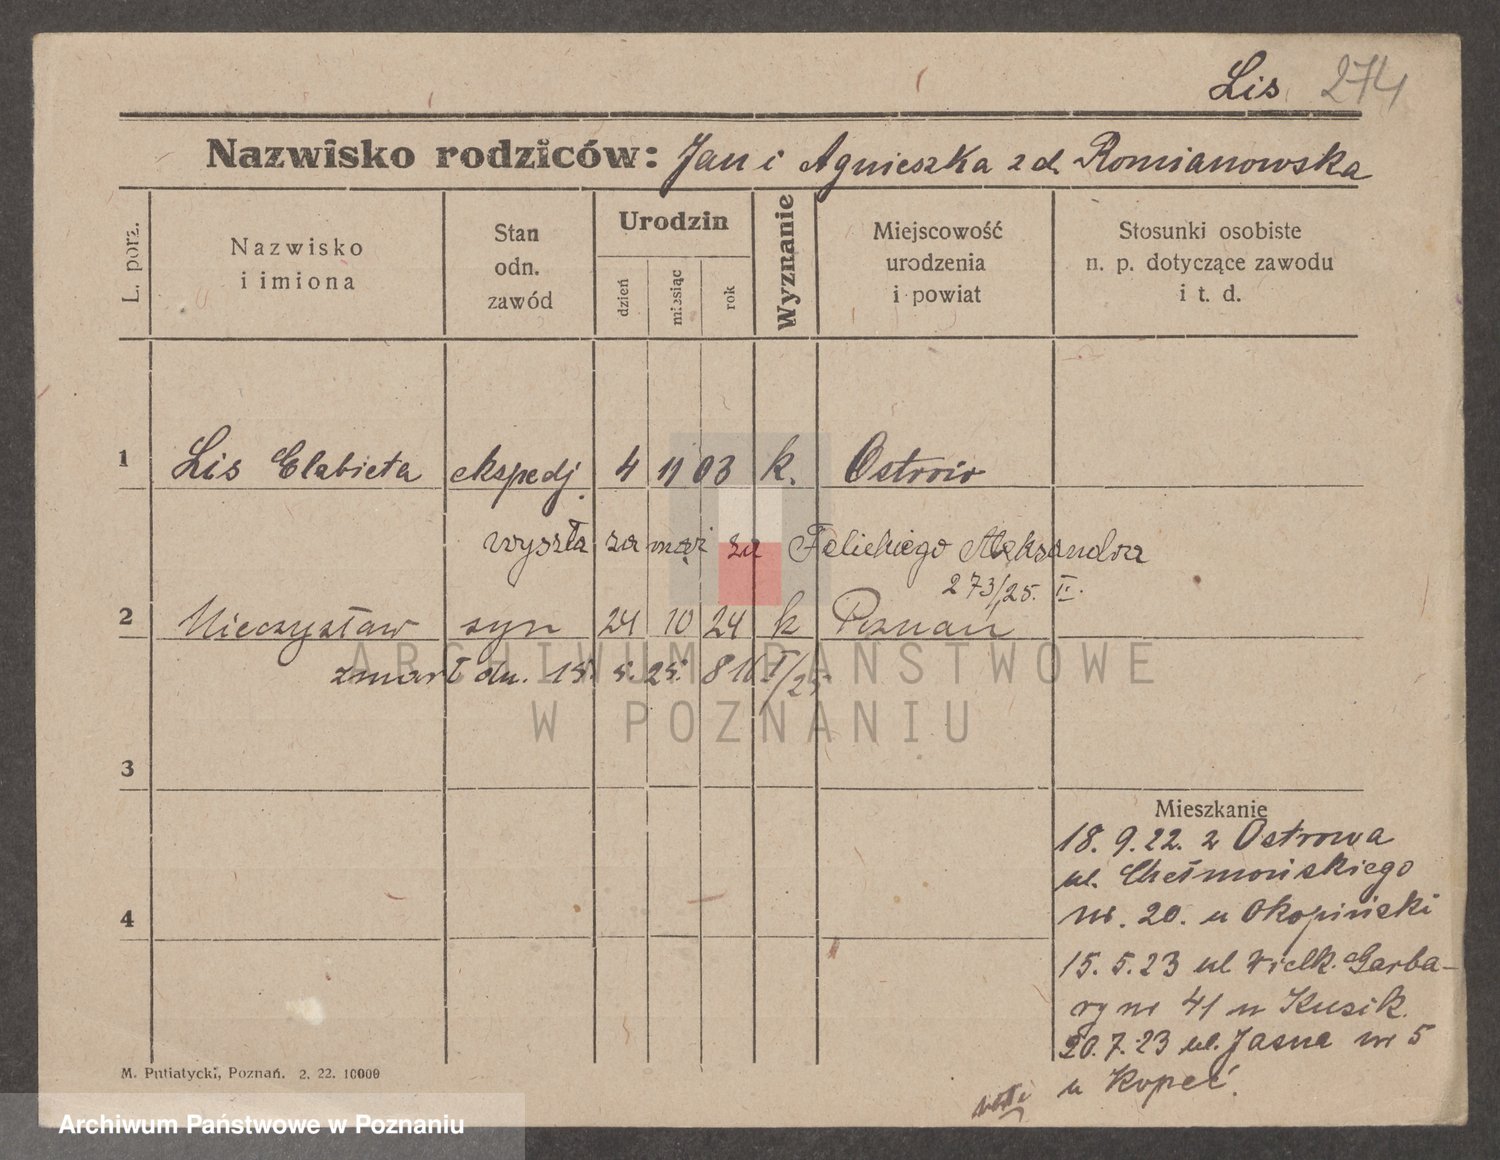 Lis 274
Nazwisko rodziców: Jan i Agnieszka z d. Romianowska
L. porz.
Nazwisko
i imiona
Stan
odn.
zawód
Urodzin
dzień
miesiąc
rok
Wyznanie
Miejscowość
urodzenia
i powiat
Stosunki osobiste
n. p. dotyczące zawodu
i t. d.
1 Lis Elżbieta ekspedj. 4 11 03 k. Ostrów
wyszła za mąż za Felickiego Aleksandra
273/25. I.
2 Mieczysław syn 24 10 24 k Poznań
zmarł dn. 15. 5. 25.
ARCHIWUM PAŃSTWOWE
W POZNANIU
3
4
Mieszkanie
18. 9. 22. z Ostrowa
ul. Chełmońskiego
nr. 20. u Okopiński
15. 5. 23 ul Wielk. Garba-
ry nr 41 u Kusik.
20. 7. 23 ul. Jasna nr 5
u Kopeć.
M. Putiatycki, Poznań. 2. 22. 10000
Archiwum Państwowe w Poznaniu